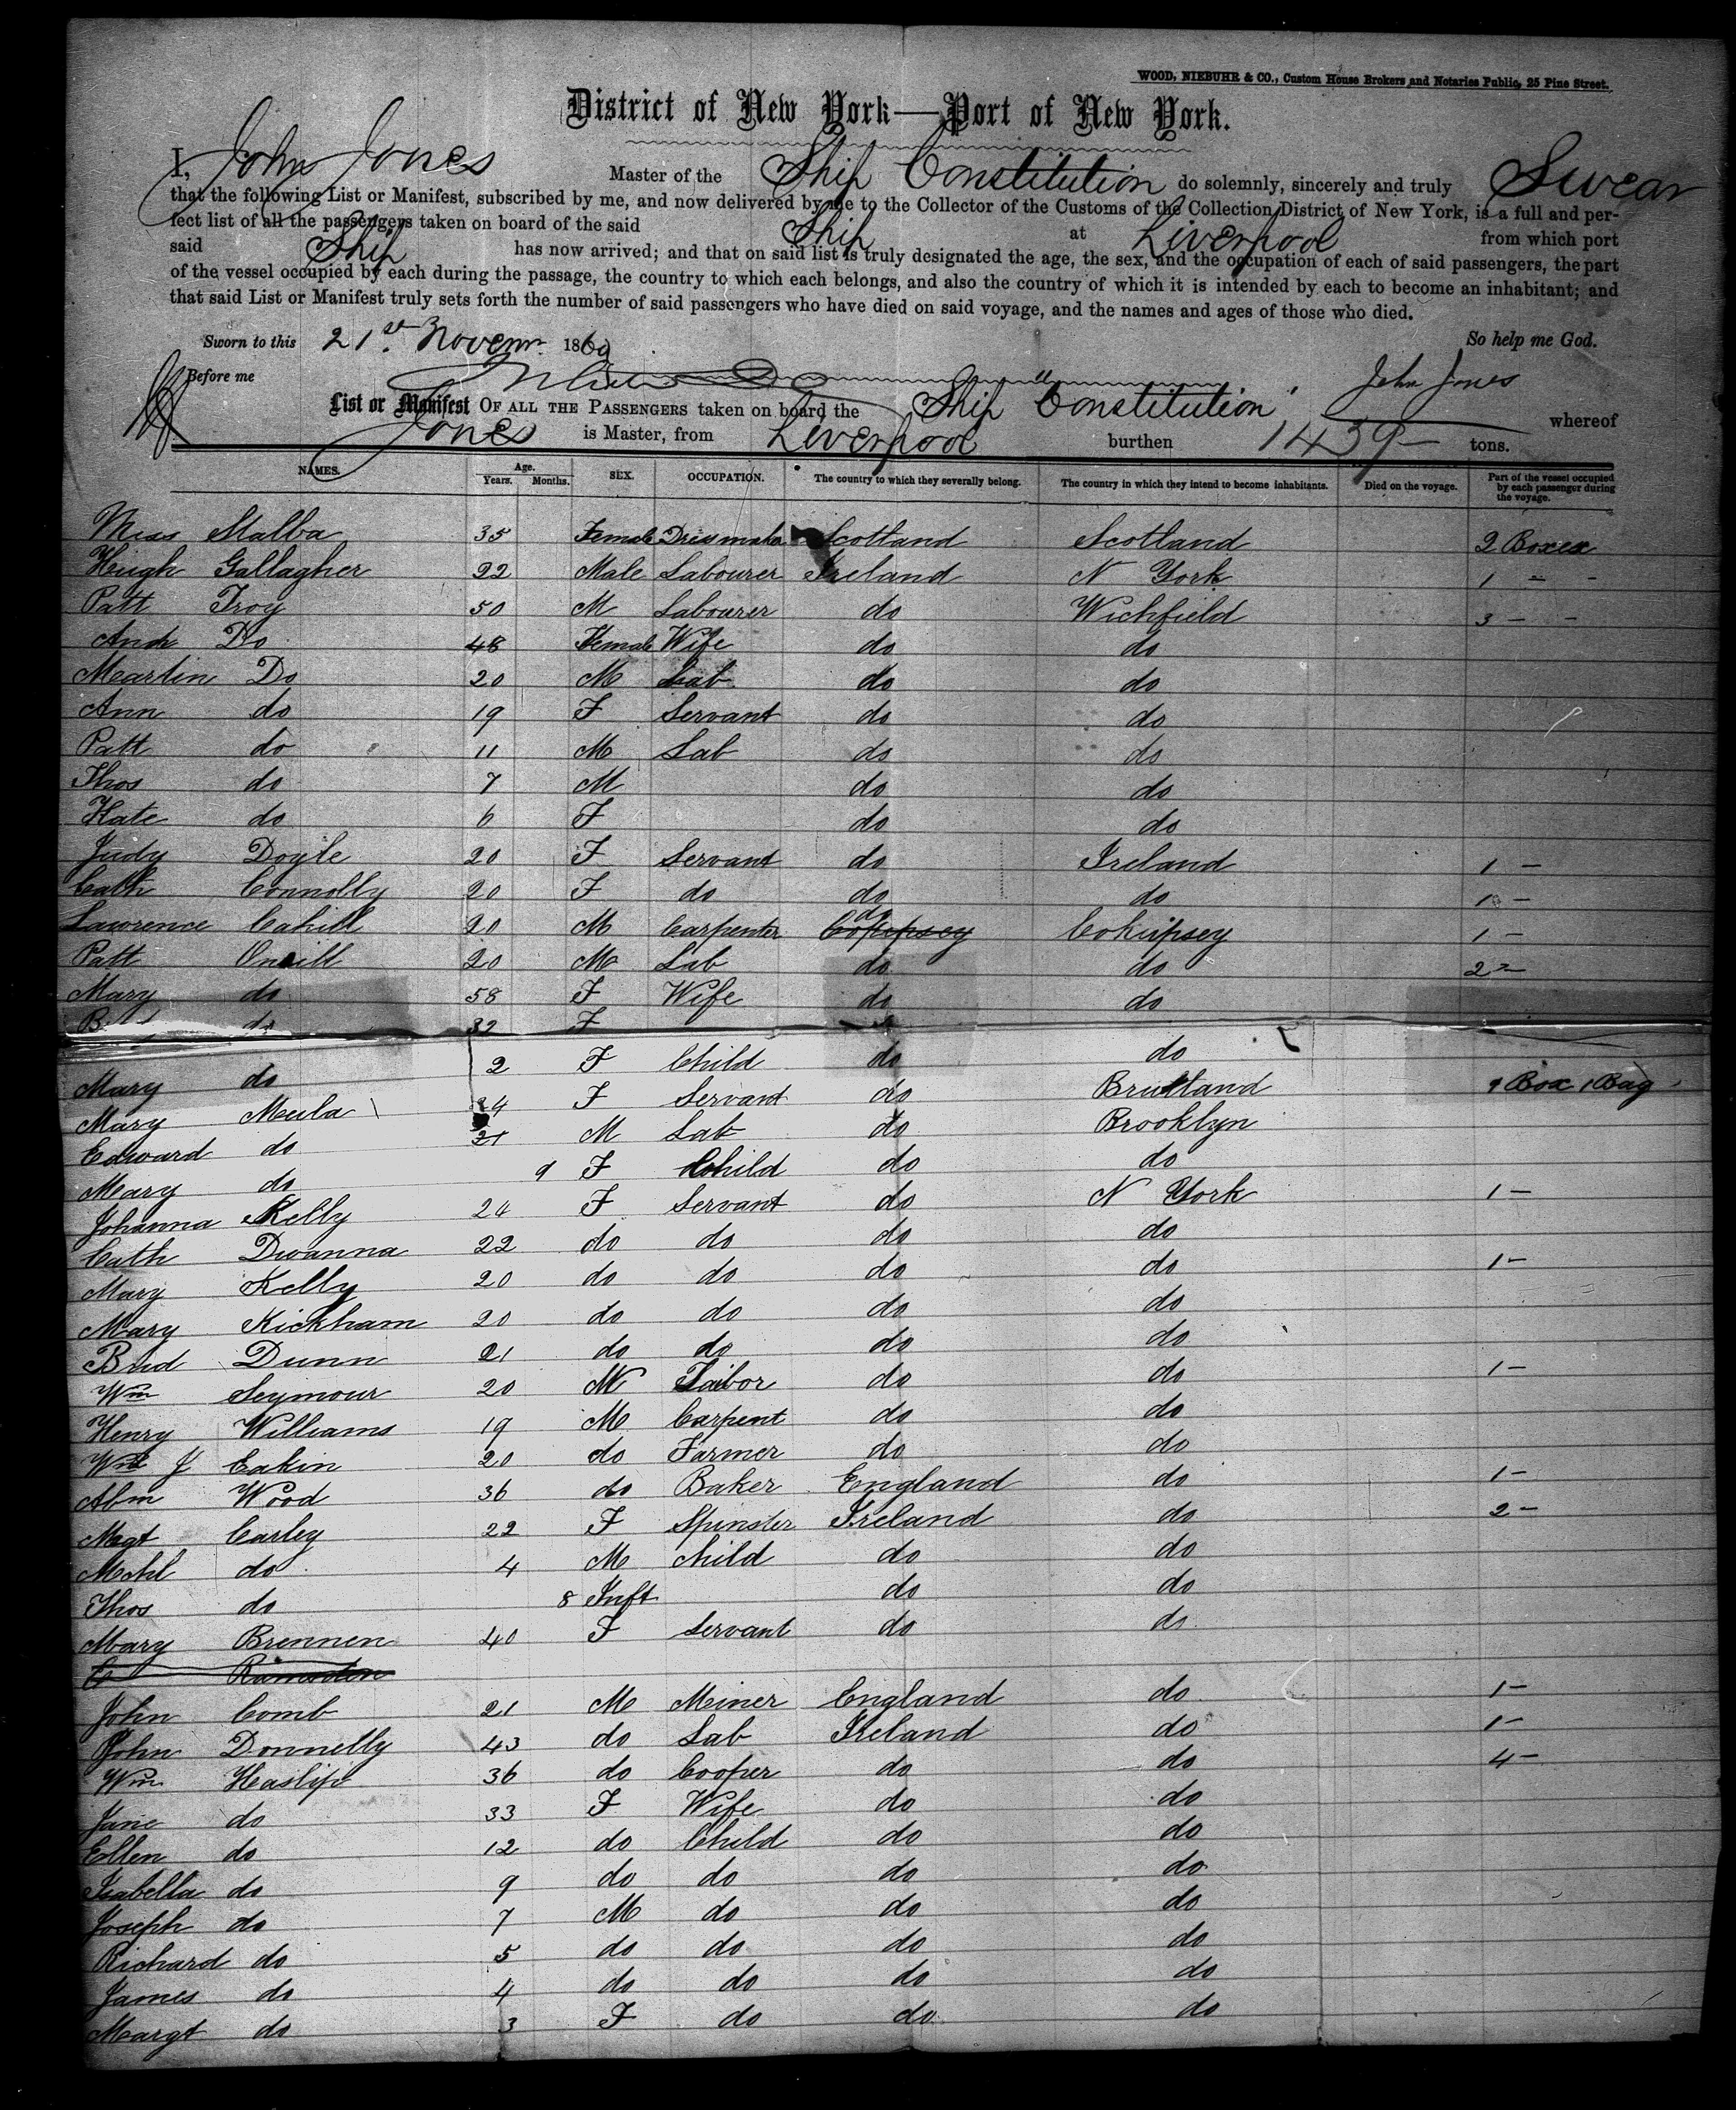 WOOD, NIEBUHR & CO., Custom House Brokers and Notaries Public, 25 Pine Street.
District of New York—Port of New York.
I, John Jones Master of the Ship Constitution do solemnly, sincerely and truly Swear
that the following List or Manifest, subscribed by me, and now delivered by me to the Collector of the Customs of the Collection District of New York, is a full and per-
fect list of all the passengers taken on board of the said Ship at Liverpool from which port
said Ship has now arrived; and that on said list is truly designated the age, the sex, and the occupation of each of said passengers, the part
of the vessel occupied by each during the passage, the country to which each belongs, and also the country of which it is intended by each to become an inhabitant; and
that said List or Manifest truly sets forth the number of said passengers who have died on said voyage, and the names and ages of those who died.
Sworn to this 21st Novemr. 1869 So help me God.
Before me John Jones
List or Manifest OF ALL THE PASSENGERS taken on board the Ship "Constitution" whereof
Jones is Master, from Liverpool burthen 1439 — tons.
NAMES. Age. Years. Months. SEX. OCCUPATION. The country to which they severally belong. The country in which they intend to become inhabitants. Died on the voyage. Part of the vessel occupied by each passenger during the voyage.
Miss Malba 35 Female Dressmaker Scotland Scotland 2 Boxes
Hugh Gallagher 22 Male Labourer Ireland N York 1 - -
Patt Troy 50 M Labourer do Wichfield 3 - -
Ann Do 48 Female Wife do do
Martin Do 20 M Lab do do
Ann do 19 F Servant do do
Patt do 11 M Lab do do
Thos do 7 M do do
Kate do 6 F do do
Judy Doyle 20 F Servant do Ireland 1 -
Cath Connolly 20 F do do do 1 -
Lawrence Cahill 20 M Carpenter do Cohipsey 1 -
Patt Oneill 20 M Lab do do 2 -
Mary do 58 F Wife do do
do 32 F
Mary do 2 F Child do do
Mary Meula 24 F Servant do Brutland 1 Box 1 Bag
Edward do 21 M Lab do Brooklyn
Mary do 9 F Child do do
Johanna Kelly 24 F Servant do N York 1 -
Cath Dwanna 22 do do do do
Mary Kelly 20 do do do do 1 -
Mary Kickham 20 do do do do
Brid Dunn 21 do do do do
Wm Seymour 20 M Labor do do 1 -
Henry Williams 19 M Carpent do do
Wm J Eakin 20 do Farmer do do
Abm Wood 36 do Baker England do 1 -
Mgt Carley 22 F Spinster Ireland do 2 -
Mchl do 4 M child do do
Thos do 8 Inft do do
Mary Brennen 40 F Servant do do
C Ramsden
John Comb 21 M Miner England do 1 -
John Donnelly 43 do Lab Ireland do 1 -
Wm Heaslip 36 do Cooper do do 4 -
Jane do 33 F Wife do do
Ellen do 12 do Child do do
Isabella do 9 do do do do
Joseph do 7 M do do do
Richard do 5 do do do do
James do 4 do do do do
Margt do 3 F do do do